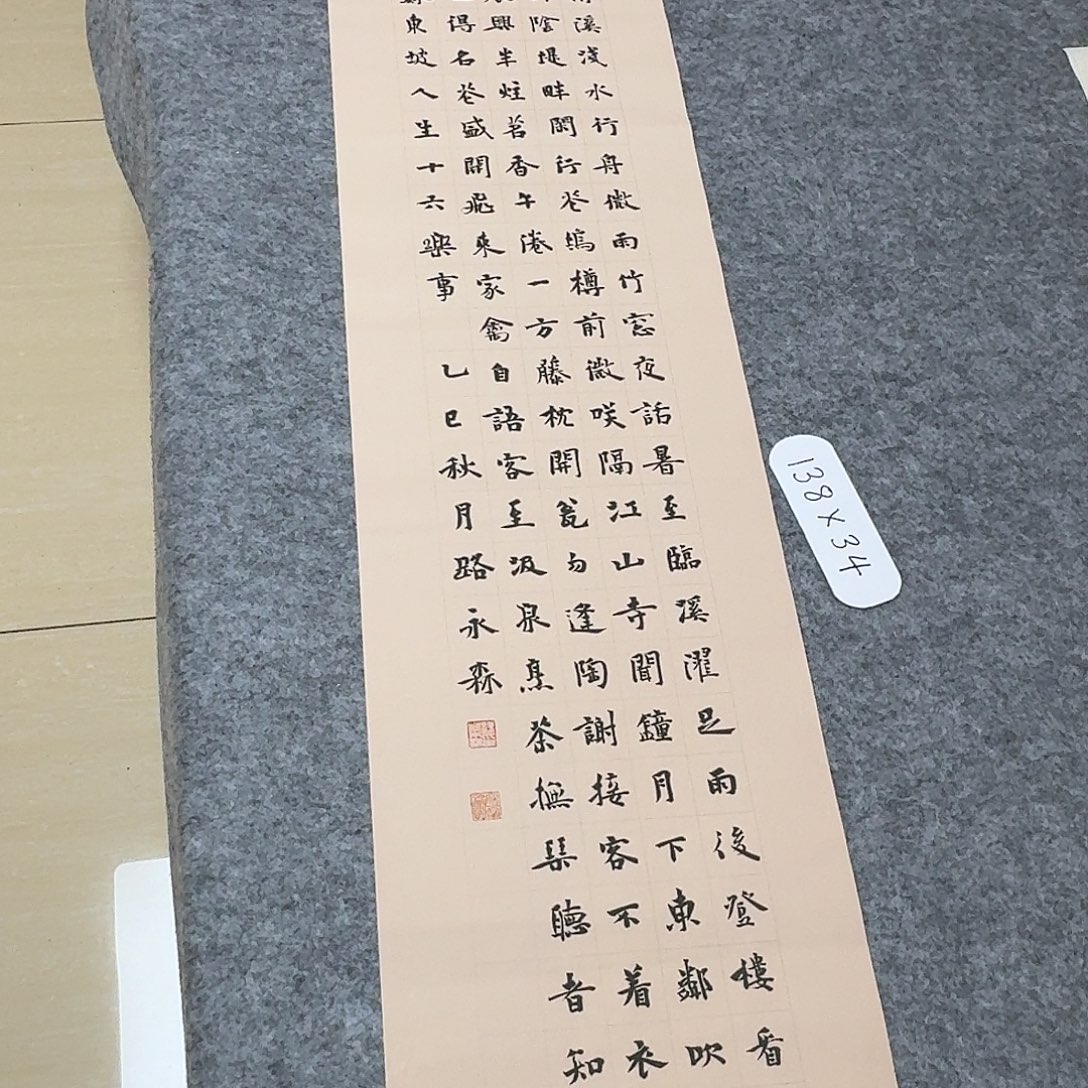 溪淺水行舟微雨竹窓夜話暑至臨溪濯足雨後登樓看
陰堤畔閑行花塢樽前微咲隔江山寺聞鐘月下東鄰吹
興半炷茗香午倦一方藤枕開瓮勿逢陶謝接客不着衣
得名花盛開飛來家禽自語客至汲泉烹茶撫琹聽者知
東坡人生十六樂事
乙巳秋月路永森
138×34